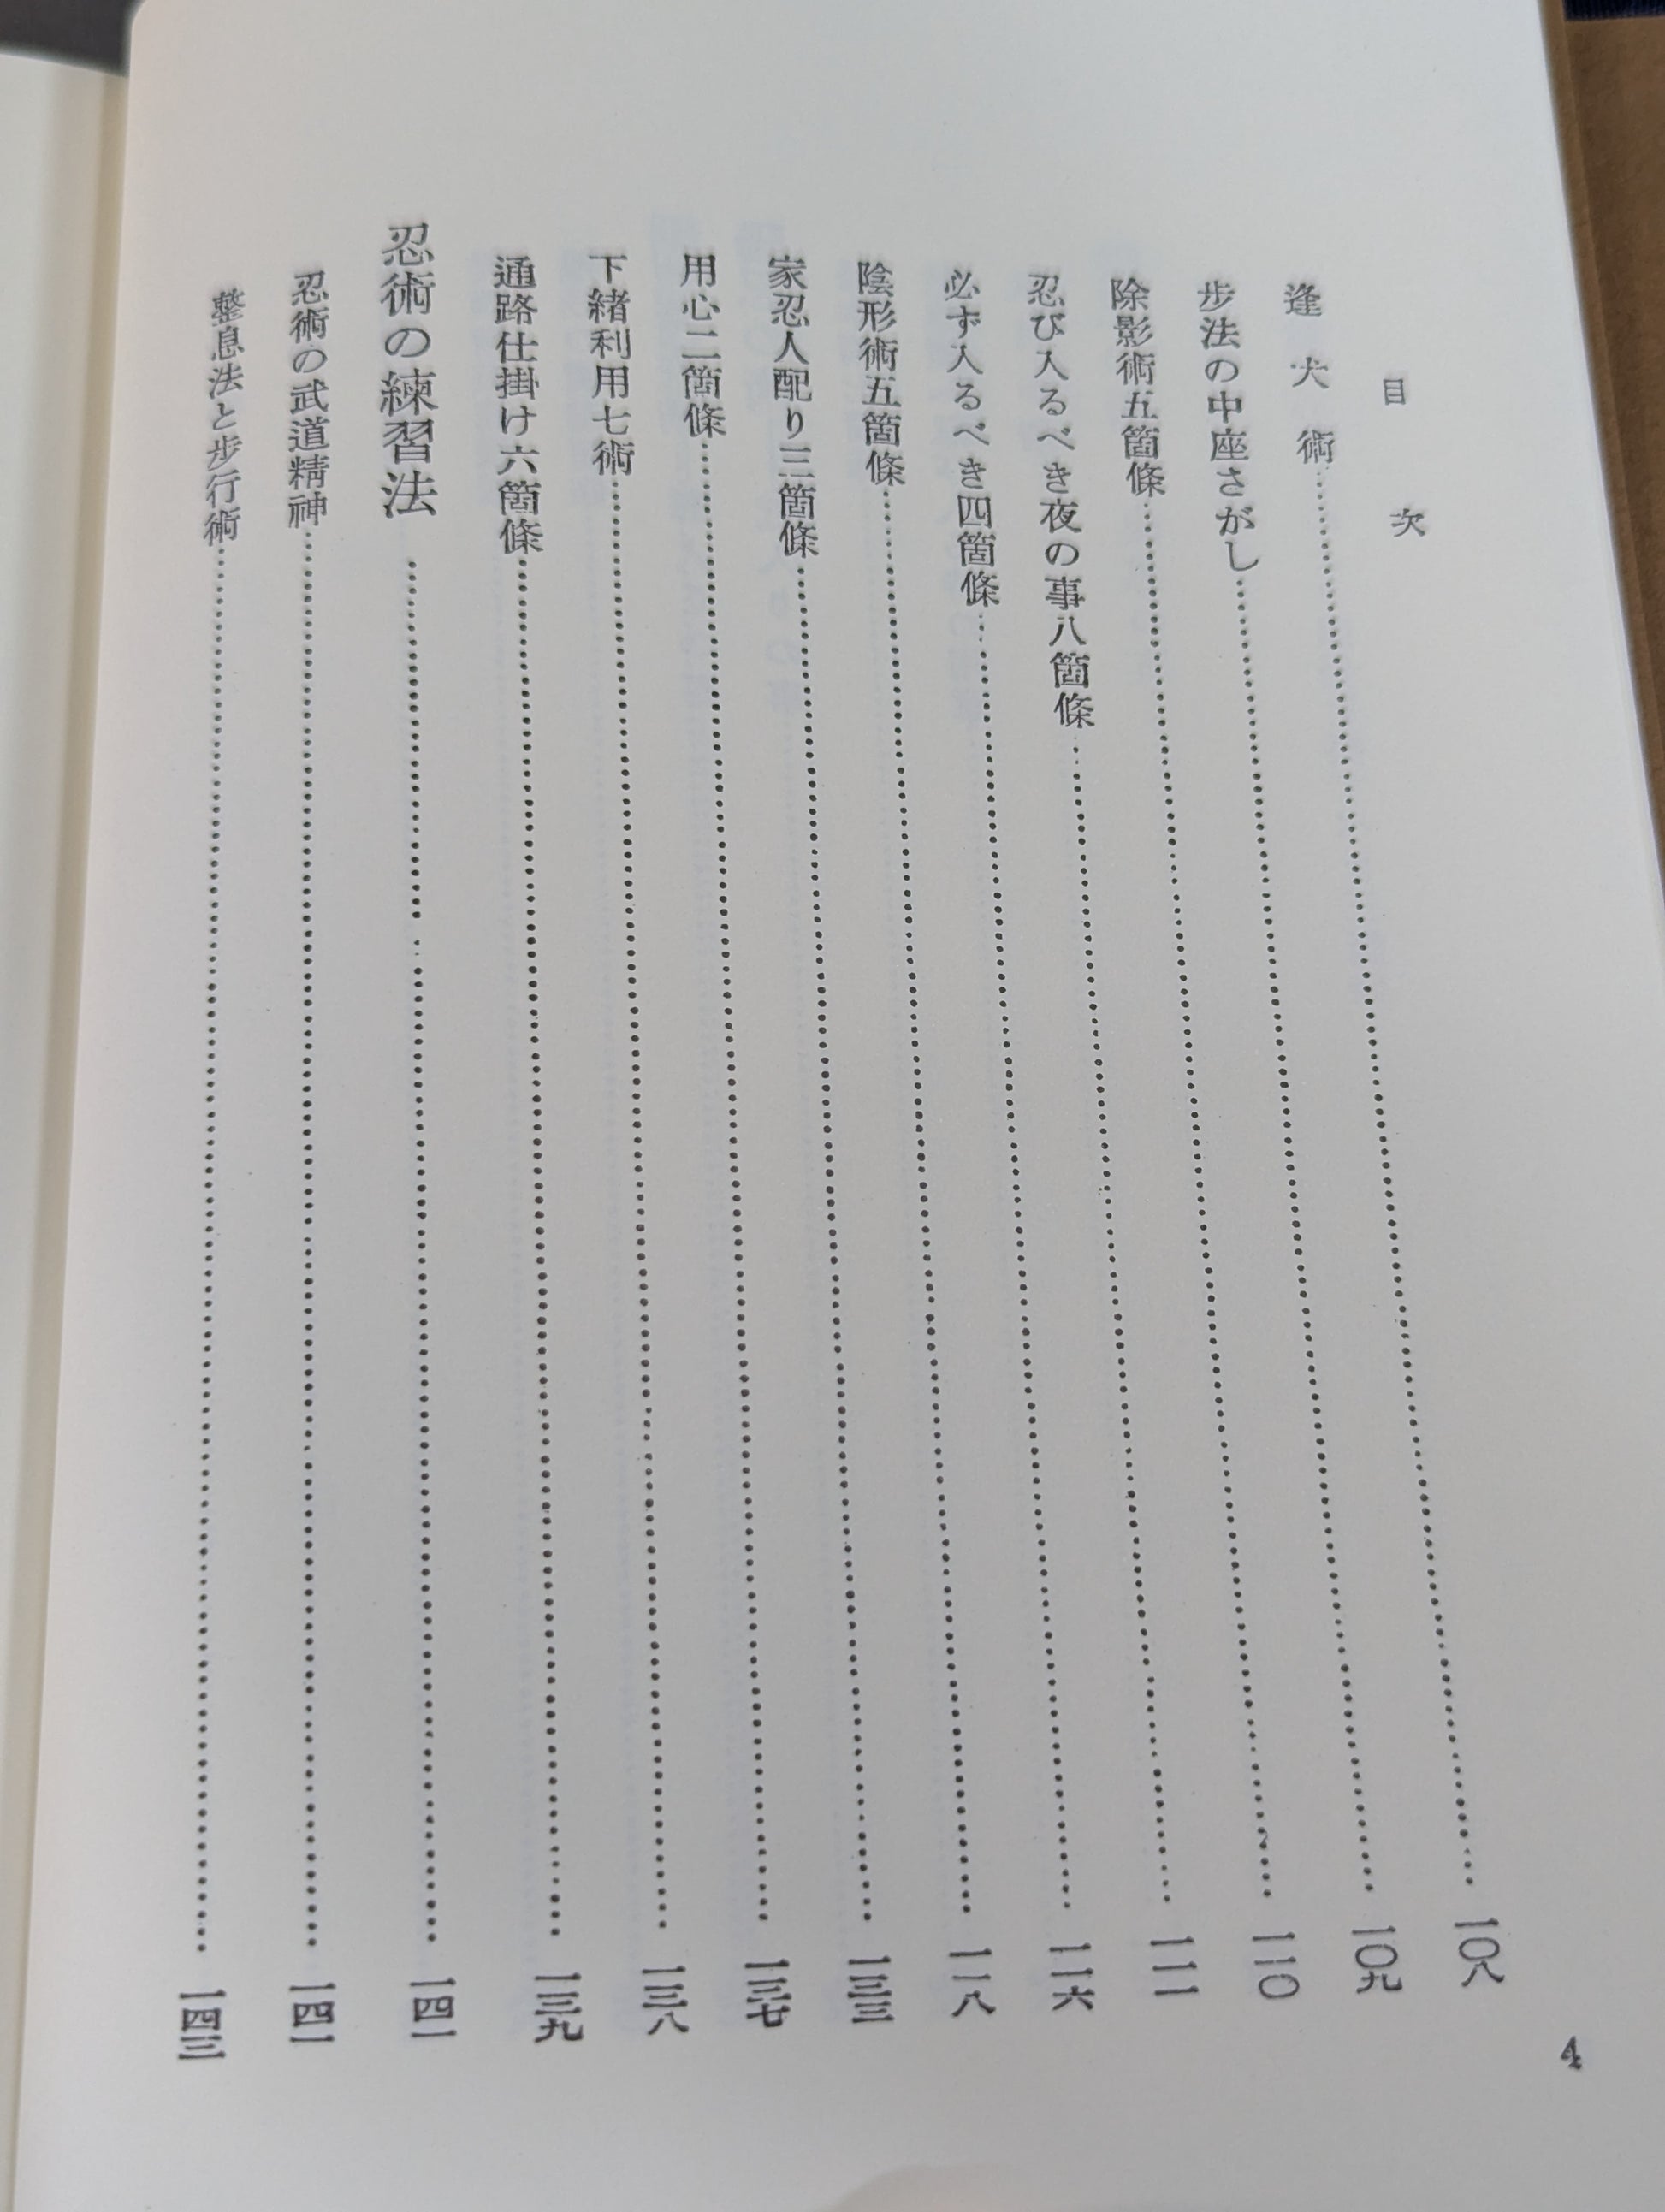 目次
逢犬術……一〇八
歩法の中座さがし……一〇九
除影術五箇條……一一〇
忍び入るべき夜の事八箇條……一一一
必ず入るべき四箇條……一一六
陰形術五箇條……一一八
家忍人配り三箇條……一三三
用心二箇條……一三七
下緒利用七術……一三八
通路仕掛け六箇條……一三九
忍術の練習法……一四一
忍術の武道精神……一四一
整息法と歩行術……一四三
4